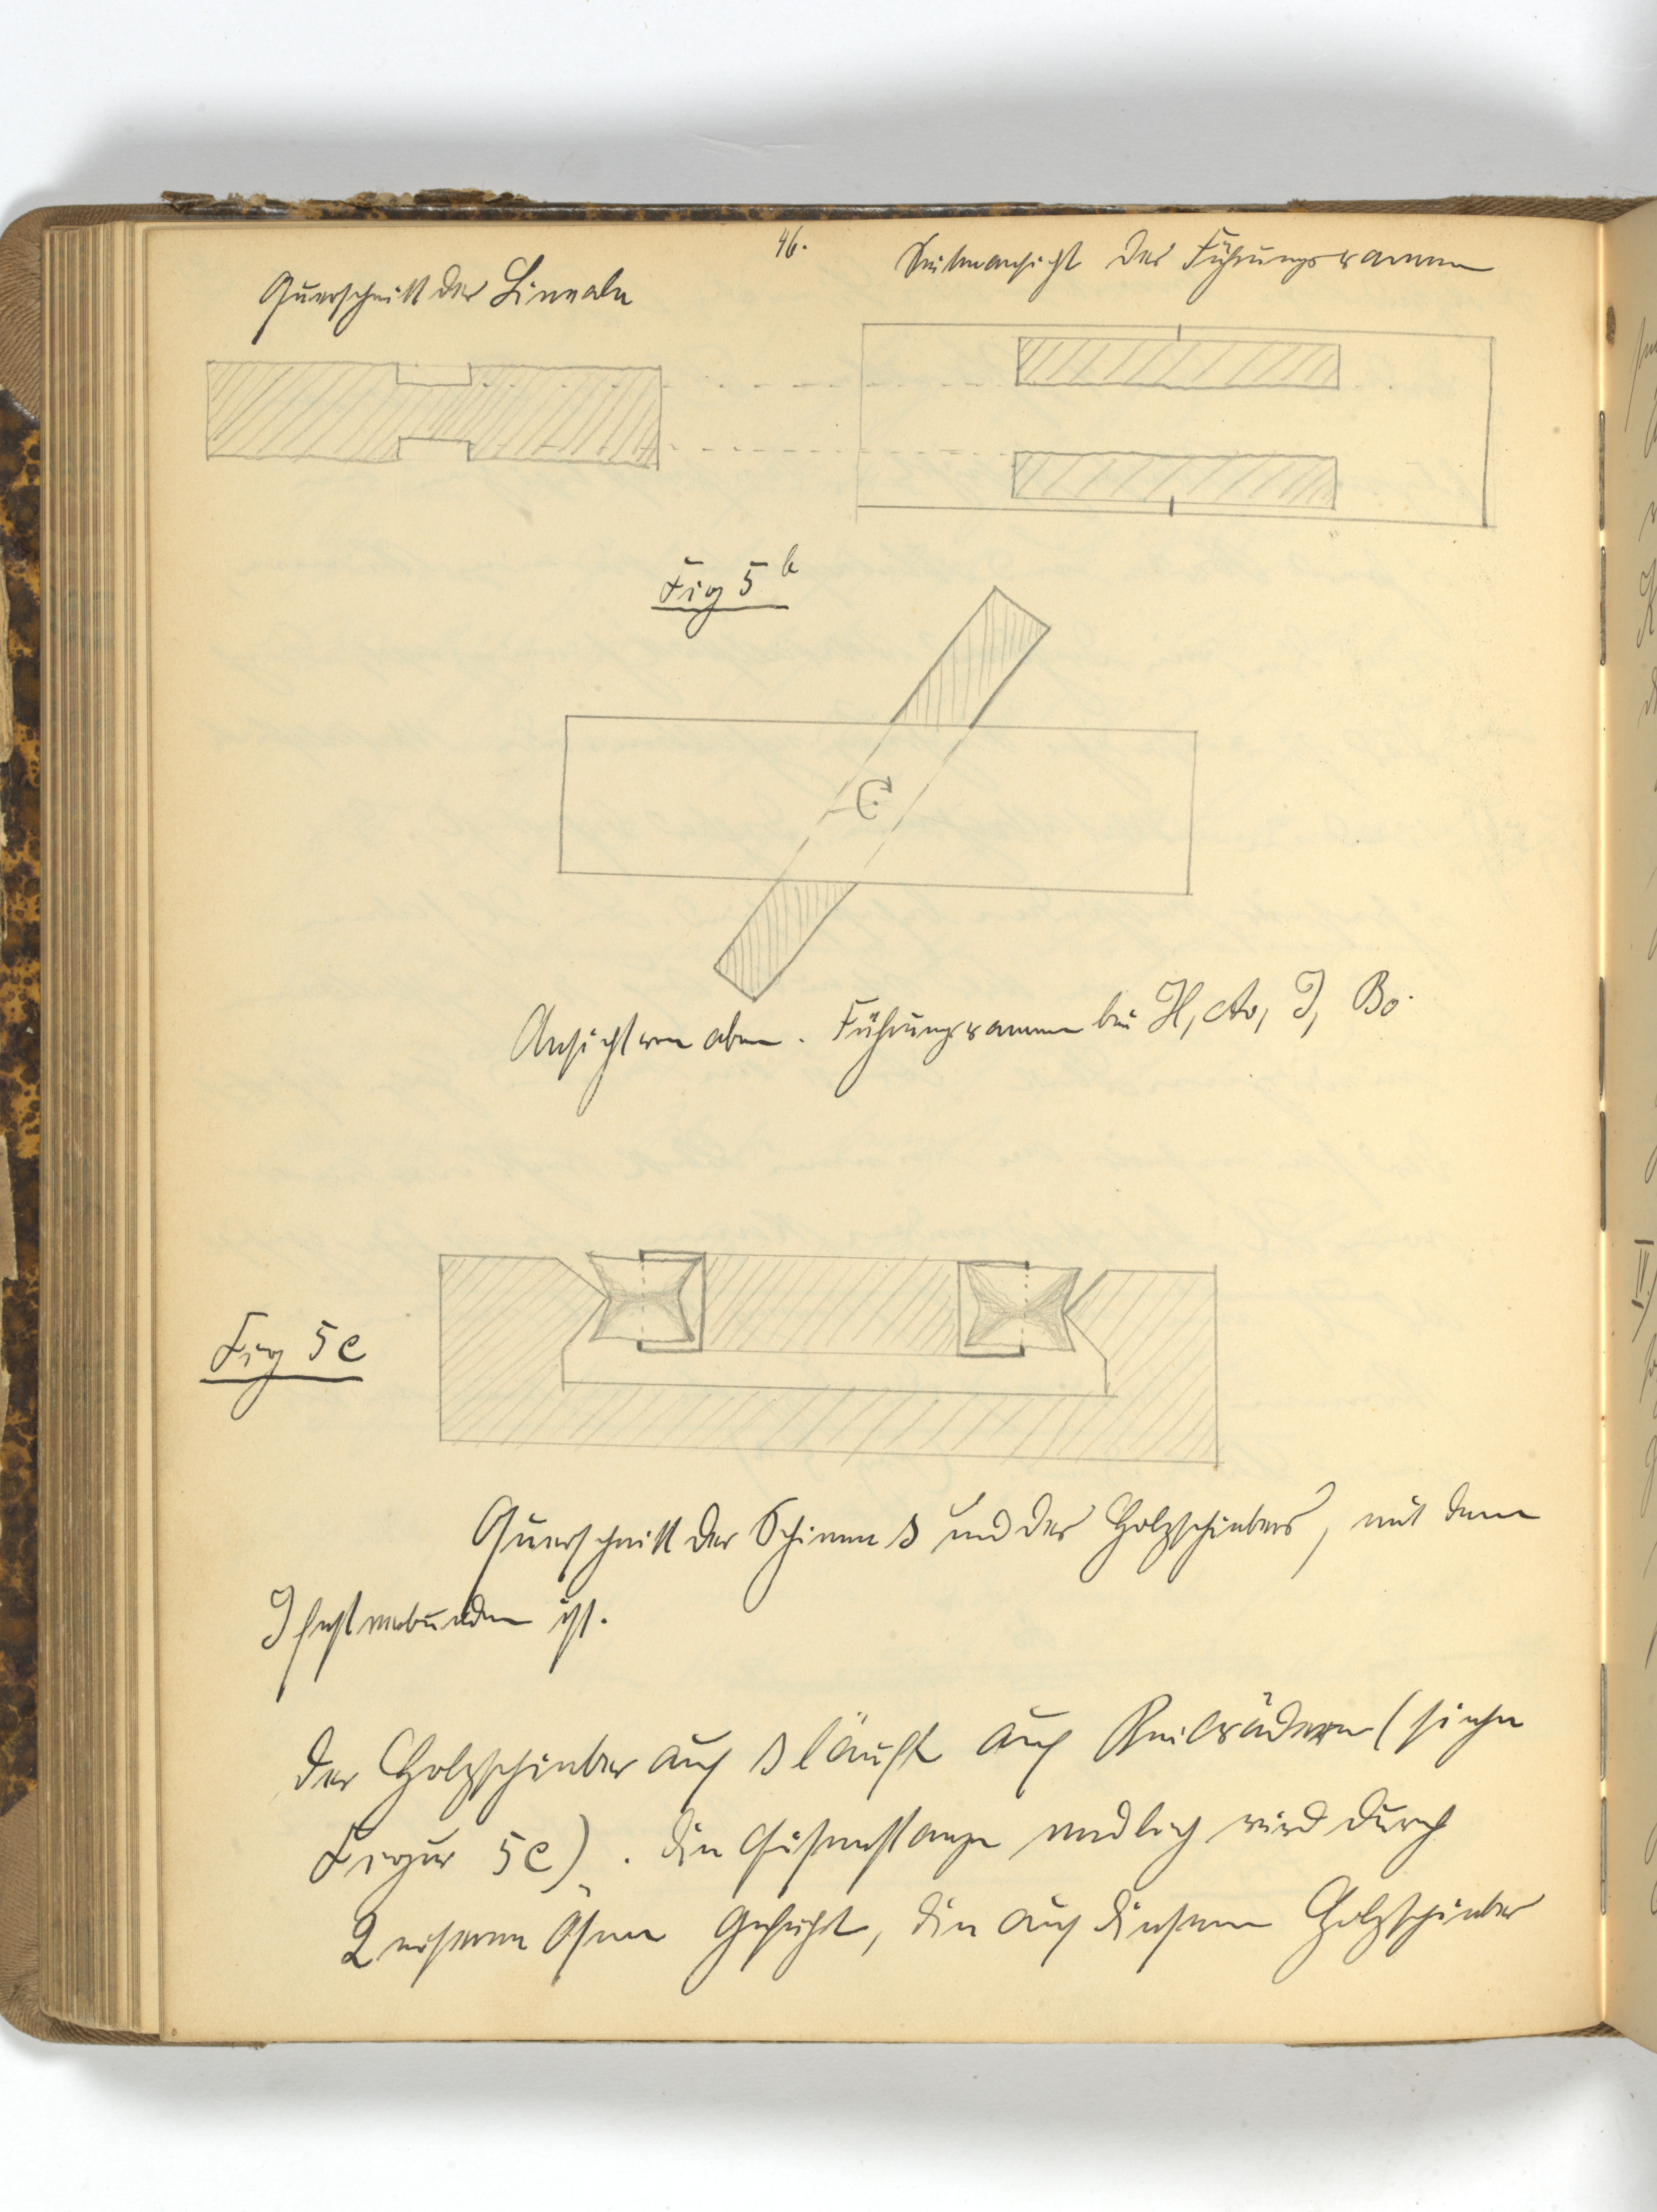 46.
Querschnitt der Lineale
Seitenansicht der Führungsrahmen
Fig 5 b
Ansicht von oben. Führungsrahmen bei H, A₀, J, B₀.
Fig 5 c
Querschnitt der Schiene S und des Holzschiebers, mit dem
J fest verbunden ist.
Der Holzschieber auf S läuft auf Keilrädern (siehe
Figur 5c). Die Eisenstange endlich wird durch
2 eiserne Ösen geführt, die auf diesem Holzschieber